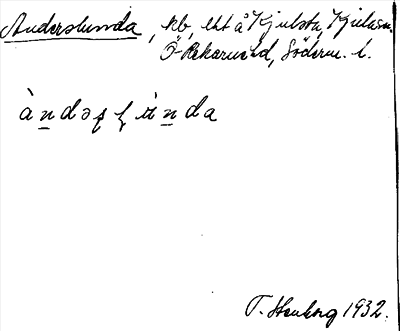 Anderslunda, kb, lht å Kjulsta, Kjula sn.
Ö Rekarne hd, Söderm. l.
àndəʂɭu̇nda
T. Hauberg 1932.